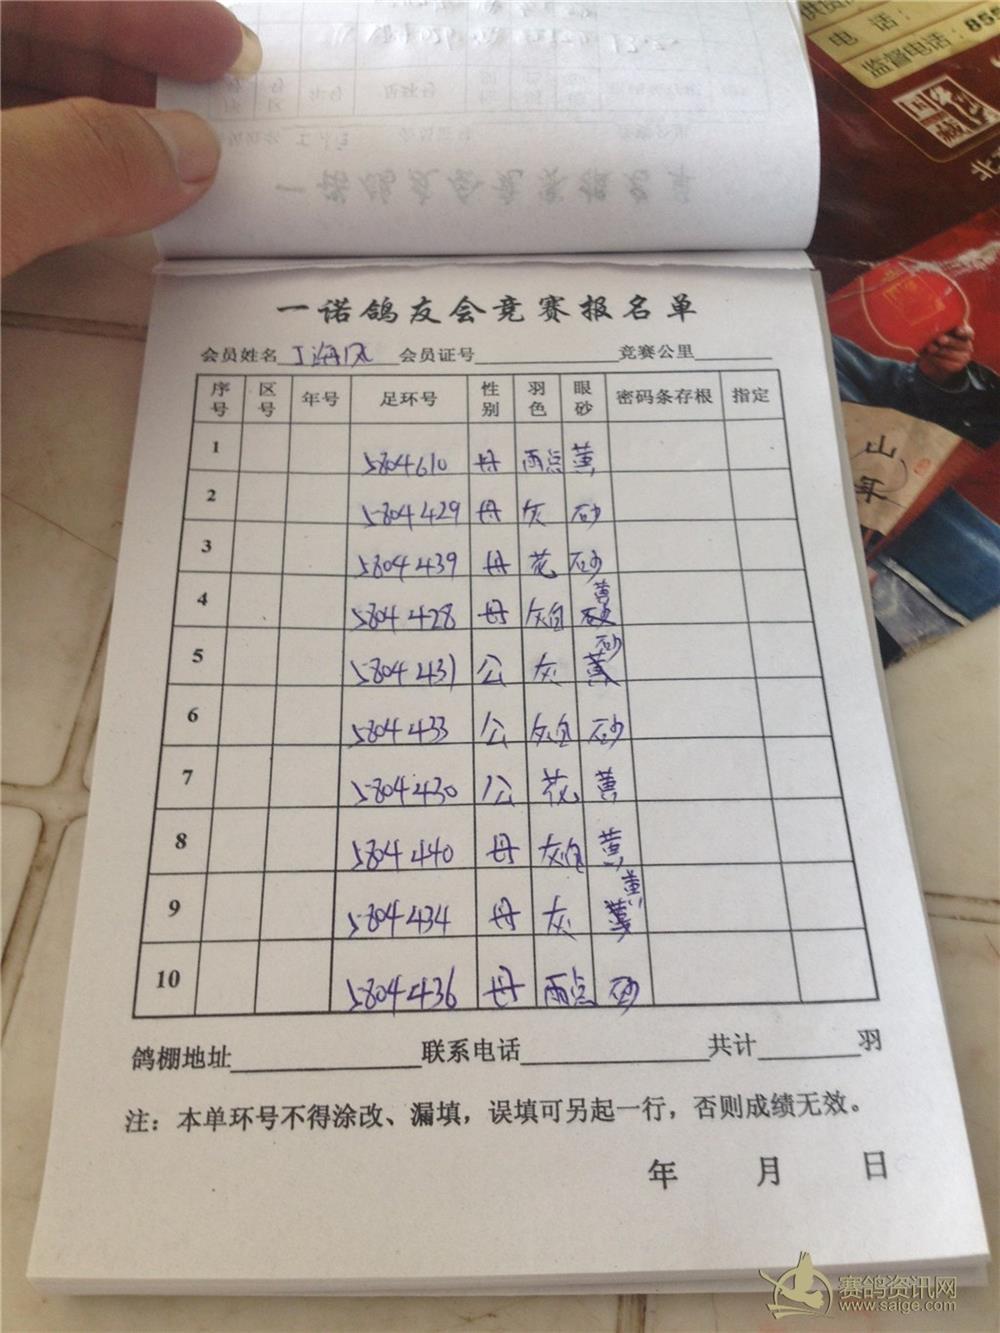 供货
电 话：
监督电话：855
国
藏
北
山
年
一诺鸽友会竞赛报名单
会员姓名 丁海风 会员证号 竞赛公里
序号 区号 年号 足环号 性别 羽色 眼砂 密码条存根 指定
1 5804610 母 雨点 黄
2 5804429 母 灰 砂
3 5804439 母 花 砂
4 5804428 母 灰白 黄
5 5804431 公 灰 砂
6 5804433 公 灰白 砂
7 5804430 公 花 黄
8 5804440 母 灰白 黄
9 5804434 母 灰 黄
10 5804436 母 雨点 砂
鸽棚地址 联系电话 共计 羽
注：本单环号不得涂改、漏填，误填可另起一行，否则成绩无效。
年 月 日
赛鸽资讯网
www.saige.com